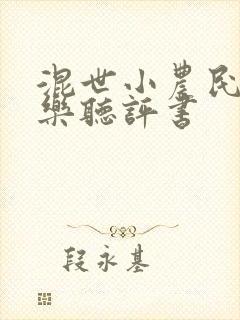 混世小農民
樂聽評書
段永基